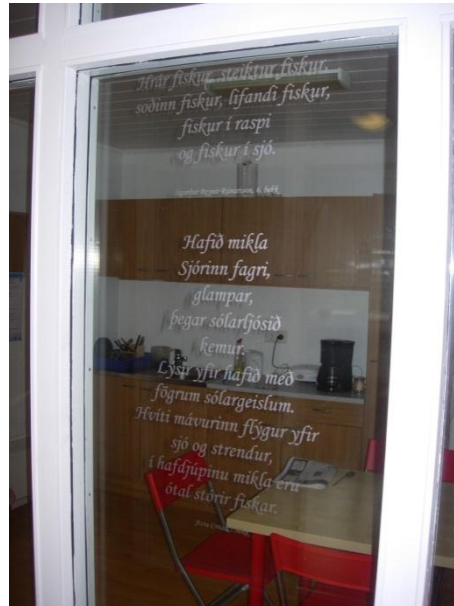 Hrár fiskur, steiktur fiskur,
soðinn fiskur, lifandi fiskur,
fiskur í raspi
og fiskur í sjó.
6. bekk
Hafið mikla
Sjórinn fagri,
glampar,
þegar sólarljósið
kemur.
Lýsir yfir hafið með
fögrum sólargeislum.
Hvíti mávurinn flýgur yfir
sjó og strendur,
í hafdjúpinu mikla eru
ótal stórir fiskar.